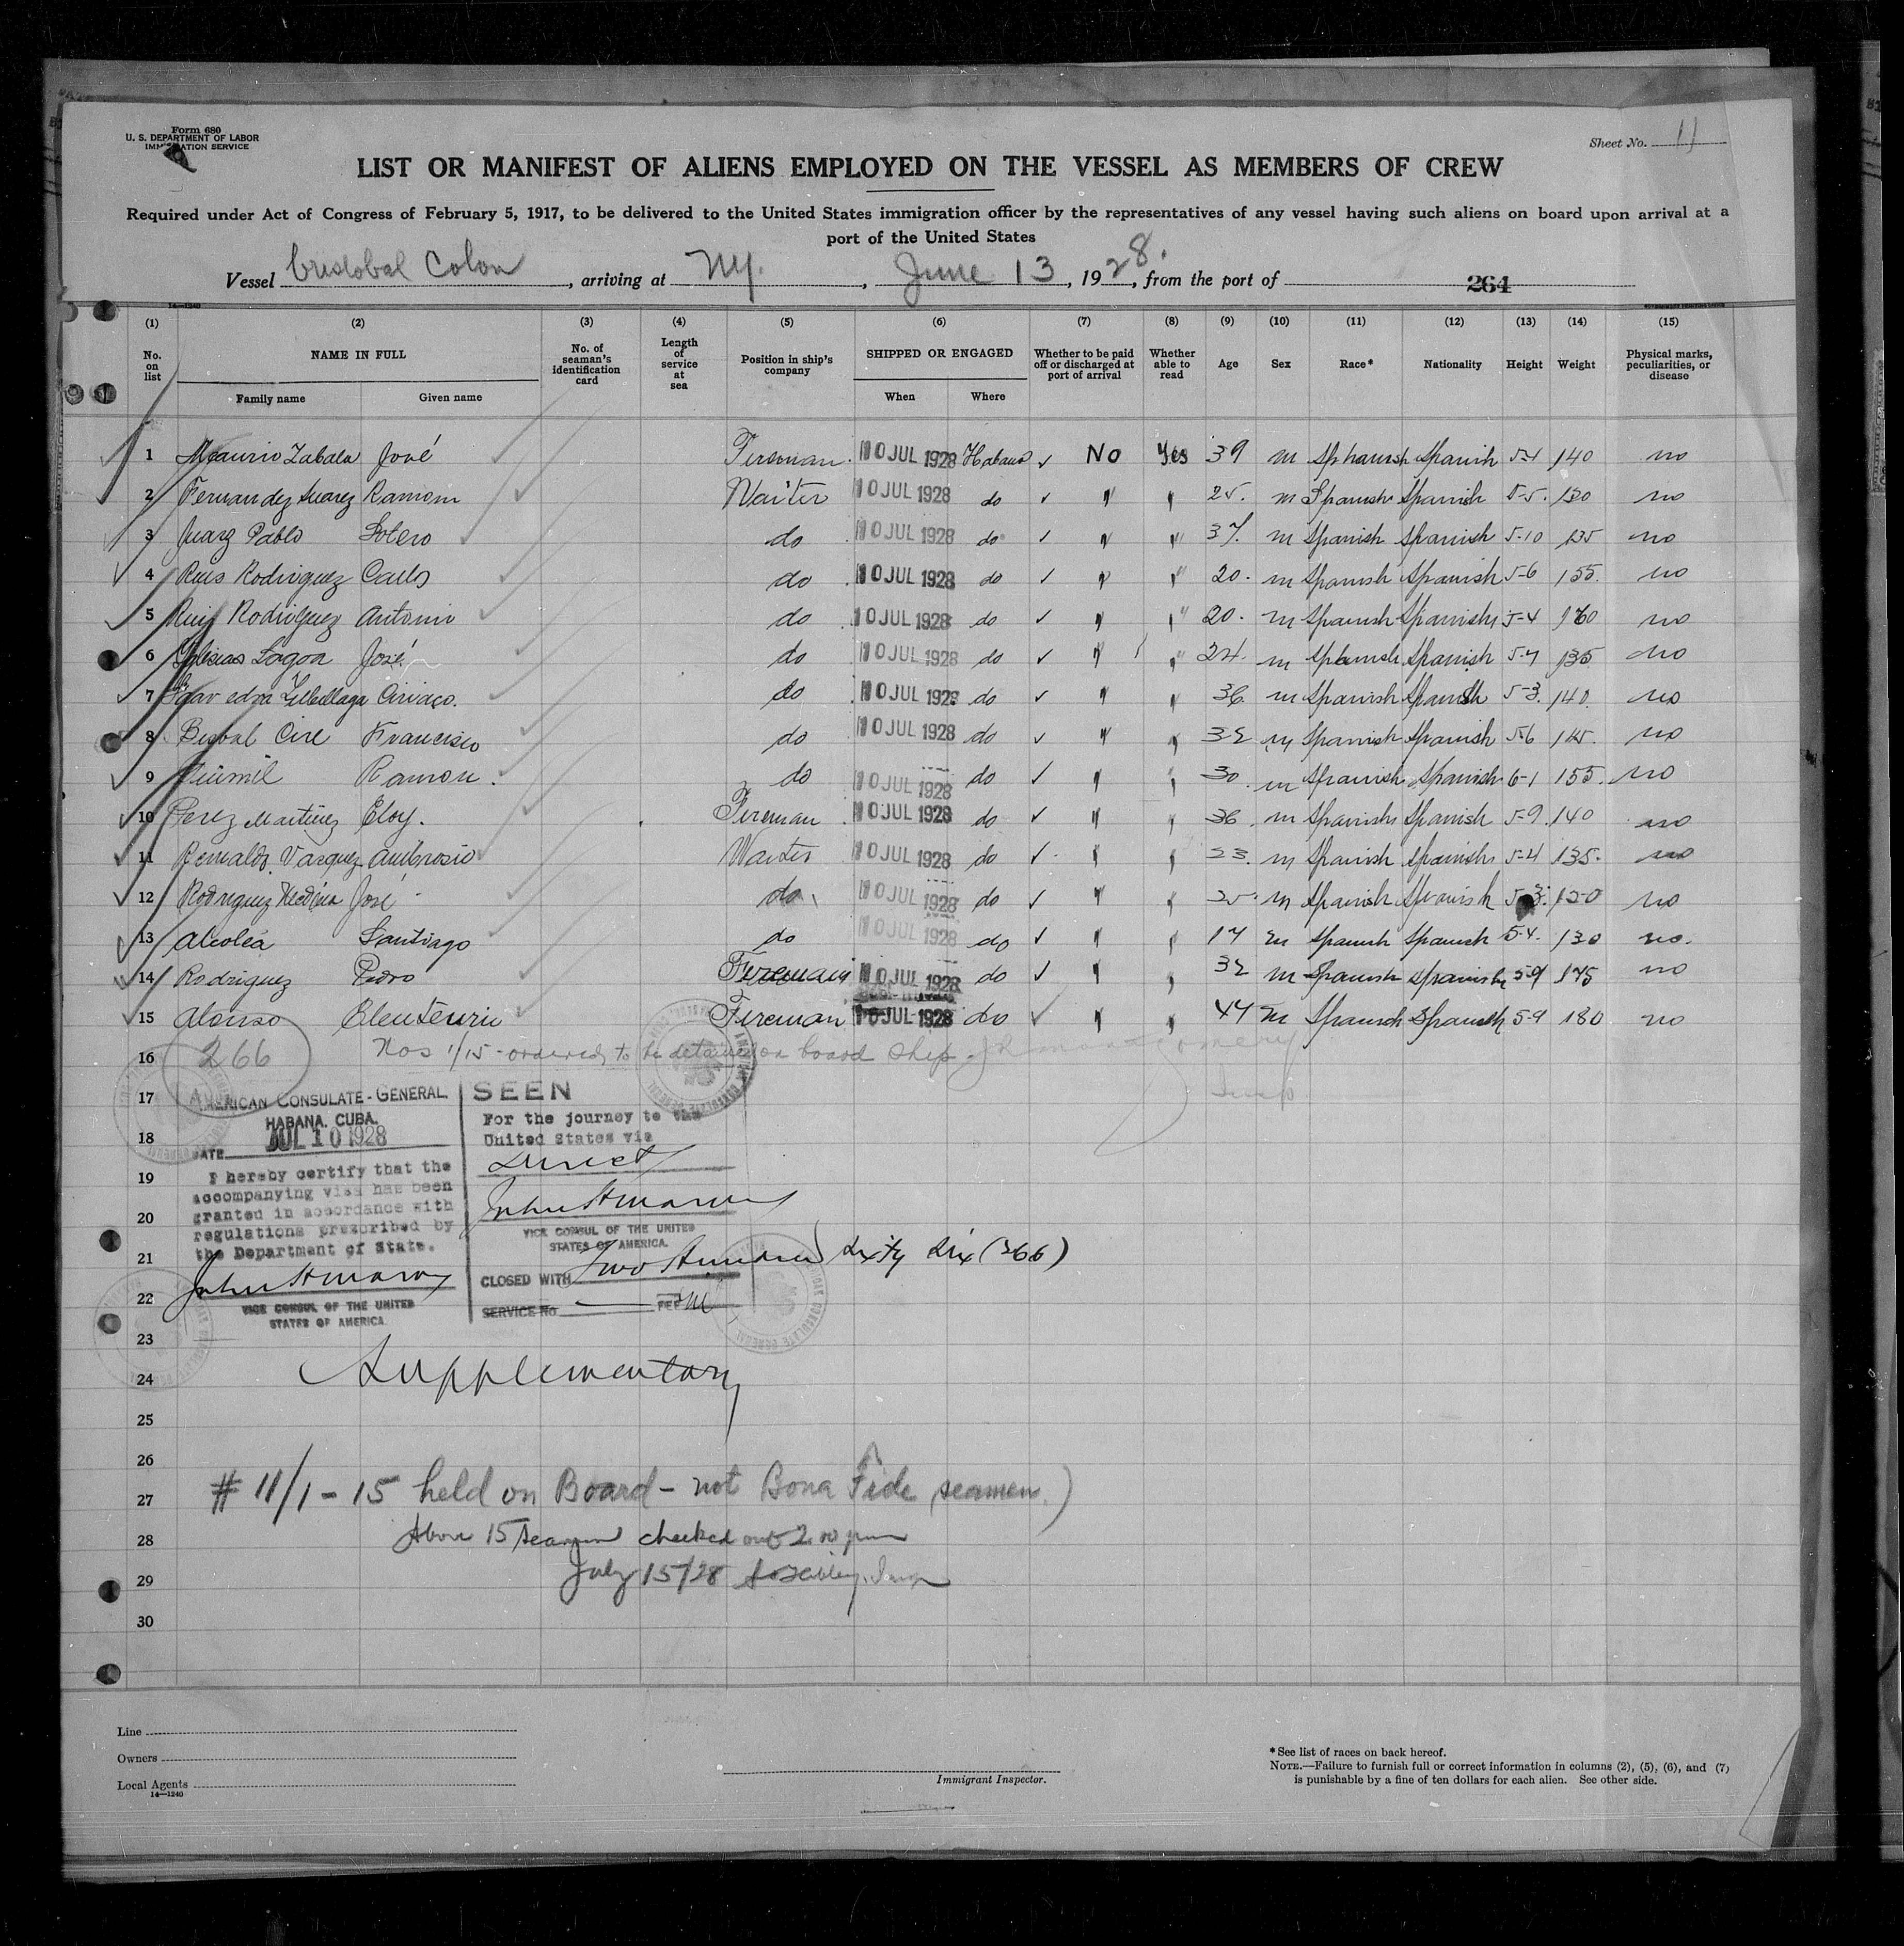 Form 680
U. S. DEPARTMENT OF LABOR
IMMIGRATION SERVICE
Sheet No. 11
LIST OR MANIFEST OF ALIENS EMPLOYED ON THE VESSEL AS MEMBERS OF CREW
Required under Act of Congress of February 5, 1917, to be delivered to the United States immigration officer by the representatives of any vessel having such aliens on board upon arrival at a
port of the United States
Vessel Cristobal Colon, arriving at NY., June 13, 1928., from the port of 264
14—1240
(1) (2) (3) (4) (5) (6) (7) (8) (9) (10) (11) (12) (13) (14) (15)
No. on list NAME IN FULL Family name Given name No. of seaman's identification card Length of service at sea Position in ship's company SHIPPED OR ENGAGED When Where Whether to be paid off or discharged at port of arrival Whether able to read Age Sex Race* Nationality Height Weight Physical marks, peculiarities, or disease
1 Zabala José Fireman 10 JUL 1928 Habana No Yes 39 m Spanish 140 no
2 Fernandez Suarez Ramon Waiter 10 JUL 1928 do " " 25. m Spanish Spanish 5-5. 130 no
3 Juarz Pablo Sotero do 10 JUL 1928 do " " 37. m Spanish Spanish 5-10 135 no
4 Ruis Rodriguez Carlos do 10 JUL 1928 do " " 20. m Spanish Spanish 5-6 155. no
5 Ruiz Rodriguez Antonio do 10 JUL 1928 do " " 20. m Spanish Spanish 5-4 160 no
6 Iglesias Lagoa José do 10 JUL 1928 do " " 24. m Spanish Spanish 5-7 135 no
7 Ciriaco. do 10 JUL 1928 do " " 36. m Spanish Spanish 5-3. 140. no
8 Bisbal Cire Francisco do 10 JUL 1928 do " " 32 m Spanish Spanish 5-6 145. no
9 Ramon. do 10 JUL 1928 do " " 30. m Spanish Spanish 6-1 155. no
10 Perez Martinez Eloy. Fireman 10 JUL 1928 do " " 36. m Spanish Spanish 5-9. 140 no
11 Vasquez Ambrosio Waiter 10 JUL 1928 do " " 23. m Spanish Spanish 5-4 135. no
12 Rodriguez Medina José do 10 JUL 1928 do " " 25. m Spanish Spanish no
13 Alcolea Santiago do 10 JUL 1928 do " " 17 m Spanish Spanish 5-4. 130 no.
14 Rodriguez Pedro Fireman 10 JUL 1928 do " " 32 m Spanish Spanish 5-9 175 no
15 Alonso Eleuterio Fireman 10 JUL 1928 do " " 44 m Spanish Spanish 5-9 180 no
16 266 Nos 1/15 - ordered to be detained on board ship. Montgomery
17 Insp.
18
19
20
21
22
23
24
25
26
27
28
29
30
AMERICAN CONSULATE-GENERAL.
HABANA. CUBA.
DATE JUL 10 1928
I hereby certify that the
accompanying visa has been
granted in accordance with
regulations prescribed by
the Department of State.
VICE CONSUL OF THE UNITED
STATES OF AMERICA
SEEN
For the journey to the
United States via
Direct
VICE CONSUL OF THE UNITED
STATES OF AMERICA.
CLOSED WITH Two Hundred Sixty Six (266)
SERVICE No. FEE
Supplementary
# 11/1 - 15 held on Board - not Bona Fide seamen.)
Above 15 seamen checked out 2.00 pm
July 15/28
Line
Owners
Local Agents
14—1240
Immigrant Inspector.
*See list of races on back hereof.
NOTE.—Failure to furnish full or correct information in columns (2), (5), (6), and (7)
is punishable by a fine of ten dollars for each alien. See other side.